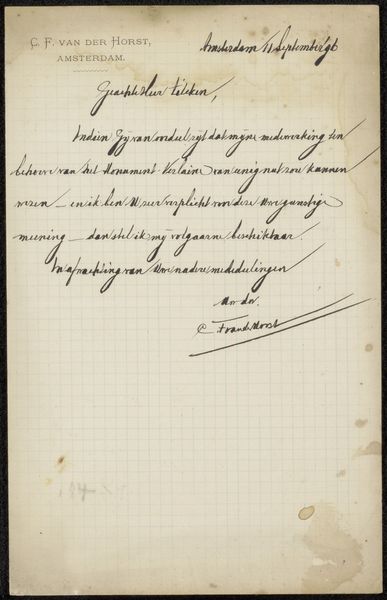 C. F. VAN DER HORST,
AMSTERDAM.
Amsterdam 11 September '96
Geachte Heer Zilcken,
Indien Gij van oordeel zijt dat mijne medewerking ten
behoeve van het Monument-Verlaine van enig nut zou kunnen
wezen — en ik ben U zeer verplicht voor deze Uwe gunstige
meening — dan stel ik mij volgaarne beschikbaar.
In afwachting van Uwe nadere mededeelingen
Uw dw.
C F van der Horst